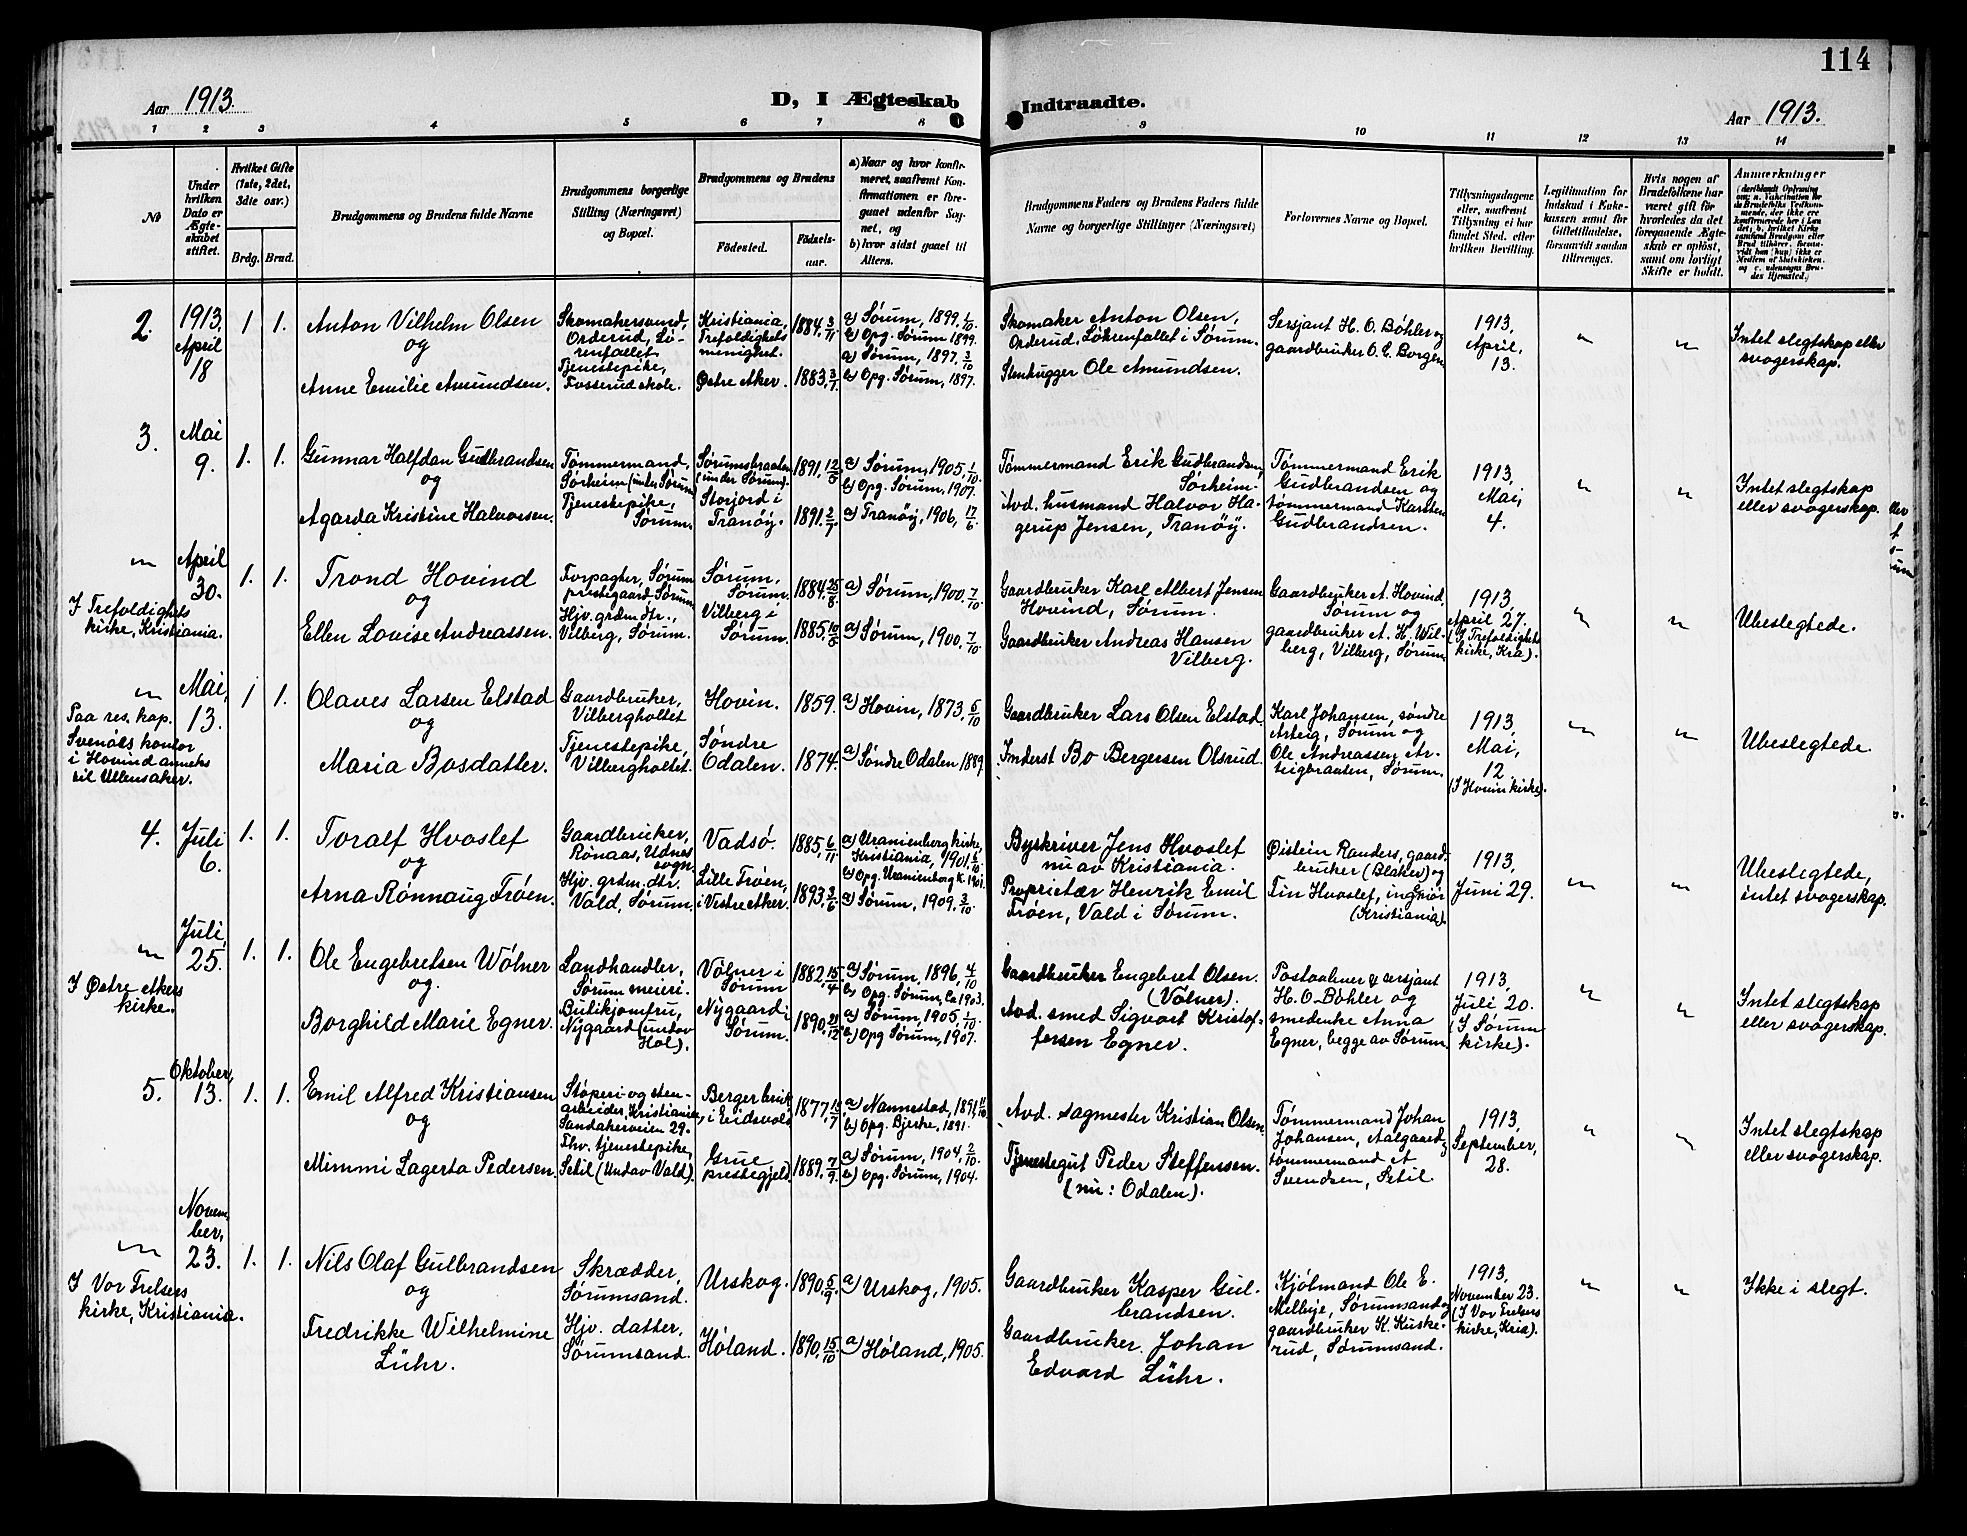 114
Aar 1913.
D, I Ægteskab
Indtraadte.
Aar 1913.
1 2 3 4 5 6 7 8 9 10 11 12 13 14
No
Under hvilken Dato er Ægteskabet stiftet.
Hvilket Gifte (1ste, 2det, 3die osv.)
Brdg. Brud.
Brudgommens og Brudens fulde Navne
Brudgommens borgerlige Stilling (Næringsvei) og Bopæl.
Brudgommens og Brudens
Födested.
Födselsaar.
a) Naar og hvor konfirmeret, saafremt Konfirmationen er foregaaet udenfor Sognet, og
b) hvor sidst gaaet til Alters.
Brudgommens Faders og Brudens Faders fulde Navne og borgerlige Stillinger (Næringsvei)
Forlovernes Navne og Bopæl.
Tillysningsdagene eller, saafremt Tillysning ei har fundet Sted, efter hvilken Bevilling.
Legitimation for Indskud i Enkekassen samt for Giftetilladelse, forsaavidt saadan tiltrænges.
Hvis nogen af Brudefolkene har været gift för hvorledes da det foregaaende Ægteskab er oplöst, samt om lovligt Skifte er holdt.
Anmærkninger
2.
1913.
April
18
1 1.
Anton Vilhelm Olsen
og
Anne Emilie Amundsen.
Skomakersvend,
Orderud, Lö-
renfallet
Tjenestepike,
Fosserud skole.
Kristiania,
Trefoldighets
menighet.
Østre Aker.
1884, 3/11
1883, 3/7
a) Sørum, 1899. 1/10
b) Opg. Sørum 1899.
a) Sørum, 1897. 3/10
b) Opg. Sørum, 1897.
Skomaker Anton Olsen,
Orderud, Lørenfallet i Sørum.
Stenhugger Ole Amundsen.
Sersjant H. O. Bøhler og
gaardbruker O. E. Borgen
1913,
April,
13.
" "
Intet slegtskap eller
svogerskap.
3.
Mai
9.
1. 1.
Gunnar Halfdan Gudbrandsen
og
Agarda Kristine Halvorsen.
Tømmermand,
Sørheim (under Sørum)
Tjenestepike,
Sørum.
Sørumsbraaten
(under Sørum).
Storjord i
Tranøy.
1891, 12/5
1891. 2/7
a) Sørum, 1905. 1/10
b) Opg. Sørum, 1907.
a) Tranöy, 1906, 17/6
Tømmermand Erik Gudbrandsen,
Sørheim.
Avd. husmand Halvor Ha-
gerup Jensen, Tranöy.
Tømmermand Erik
Gudbrandsen og
tømmermand Karsten
Gudbrandsen.
1913,
Mai,
4.
" "
Intet slegtskap
eller svogerskap.
"
April
30.
I Trefoldighets
kirke, Kristiania.
1. 1.
Trond Hovind
og
Ellen Lovise Andreassen.
Forpagter, Sørum
prestegaard Sørum
Hjv. grdm. dtr.,
Vilberg, Sørum.
Sørum,
Sørum.
Vilberg i
Sørum.
1884. 25/8
1885, 10/5
a) Sørum, 1900. 7/10
a) Sørum, 1900. 7/10
Gaardbruker Karl Albert Jensen
Hovind, Sørum.
Gaardbruker Andreas Hansen
Vilberg.
Gaardbruker A. Hovind,
Sørum og
gaardbruker A. H. Wil-
berg, Vilberg, Sørum
1913,
April 27.
(I Trefoldighets
kirke, Kra).
" "
Ubeslegtede.
"
Mai,
13.
Paa res. kap.
Svenåes kontor
i Hovind anneks
til Ullensaker.
1 1.
Olaves Larsen Elstad
og
Maria Bosdatter.
Gaardbruker,
Vilbergholtet
Tjenestepike,
Vilbergholtet.
Hovin.
Søndre
Odalen.
1859.
1874.
a) Hovin, 1873. 5/10
a) Søndre Odalen 1889.
Gaardbruker Lars Olsen Elstad.
Inderst Bo Bergersen Olsrud.
Karl Johansen, søndre
Arteig, Sørum og
Ole Andreassen, Ar-
teigbraaten, Sørum.
1913,
Mai,
12
(I Hovin kirke).
" "
Ubeslegtede.
4.
Juli
6.
1. 1.
Toralf Hvoslef
og
Arna Rönnaug Trøen.
Gaardbruker,
Rönaas, Udnes
sogn.
Hjv. grdm. dtr.
Vald, Sørum.
Vadsø.
Lille Trøen,
i Vestre Aker.
1885, 6/11
1893, 3/6
a) Uranienborg kirke,
Kristiania, 1901. 6/10
b) Opg. Uranienborg k. 1901.
a) Sørum, 1909. 3/10
Byskriver Jens Hvoslef
nu av Kristiania.
Proprietær Henrik Emil
Trøen, Vald i Sørum.
Øistein Randers, gaard-
bruker (Blaker) og
Fin Hvoslef, ingeniør
(Kristiania).
1913,
Juni 29.
" "
Ubeslegtede,
intet svogerskap.
"
Juli,
25.
I Østre Akers
kirke.
1. 1.
Ole Engebretsen Wölner
og
Borghild Marie Egner.
Landhandler,
Sørum meieri.
Butikjomfru,
Nygaard (undav
Hol).
Völner i
Sørum
Nygaard i
Sørum.
1882, 15/4
1890. 21/12
a) Sørum, 1896, 4/10
b) Opg. Sørum, Ca 1903.
a) Sørum, 1905, 1/10
b) Opg Sørum, 1907.
Gaardbruker Engebret Olsen
(Völner).
Avd. smed Sigvart Kristof-
fersen Egner.
Postaabner & sersjant
H. O. Bøhler og
smedenke Anna
Egner, begge av Sørum.
1913,
Juli 20.
(I Sørum
kirke).
" "
Intet slegtskap
eller svogerskap.
5.
Oktober,
13.
1. 1.
Emil Alfred Kristiansen
og
Mimmi Lagerta Pedersen.
Støperi- og sten-
arbeider, Kristiania,
Sandakerveien 29.
Fhv. tjenestepike,
Setil (Undav Vald).
Berger bruk
i Eidsvold
Grue
prestegjeld.
1877, 15/7
1889, 7/9
a) Nannestad, 1891,
b) Opg. Bjerke, 1891.
a) Sørum, 1904. 2/10
b) Opg. Sørum, 1904.
Avd. sagmester Kristian Olsen.
Tjenestegut Peder Steffensen.
(nu: Odalen).
Tømmermand Johan
Johansen, Aalgaard &
tømmermand A
Svendsen, Setil.
1913,
September,
28.
" "
Intet slegtskap
eller svogerskap.
"
Novem-
ber,
23.
I Vor Frelsers
kirke, Kristiania.
1. 1.
Nils Olaf Gulbrandsen
og
Fredrikke Wilhelmine
Lühr.
Skrædder,
Sørumsand.
Hjv. datter,
Sørumsand.
Urskog.
Høland.
1890, 5/9
1890, 15/10
a) Urskog, 1905.
a) Høland, 1905.
Gaardbruker Kasper Gul-
brandsen.
Gaardbruker Johan
Edvard Lühr.
Kjölmand Ole E.
Melbye, Sørumsand og
gaardbruker K. Kuske-
rud, Sørumsand.
1913,
November 23.
(I Vor Frelsers
kirke, Kria).
" "
Ikke i slegt.